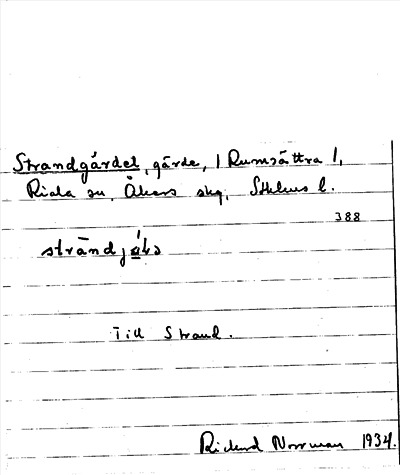 Strandgärdet, gärde, / Rumsättra /,
Riala sn, Åkers skg, Sthlms l.
388
Till Strand.
Rickard Norrman 1934.